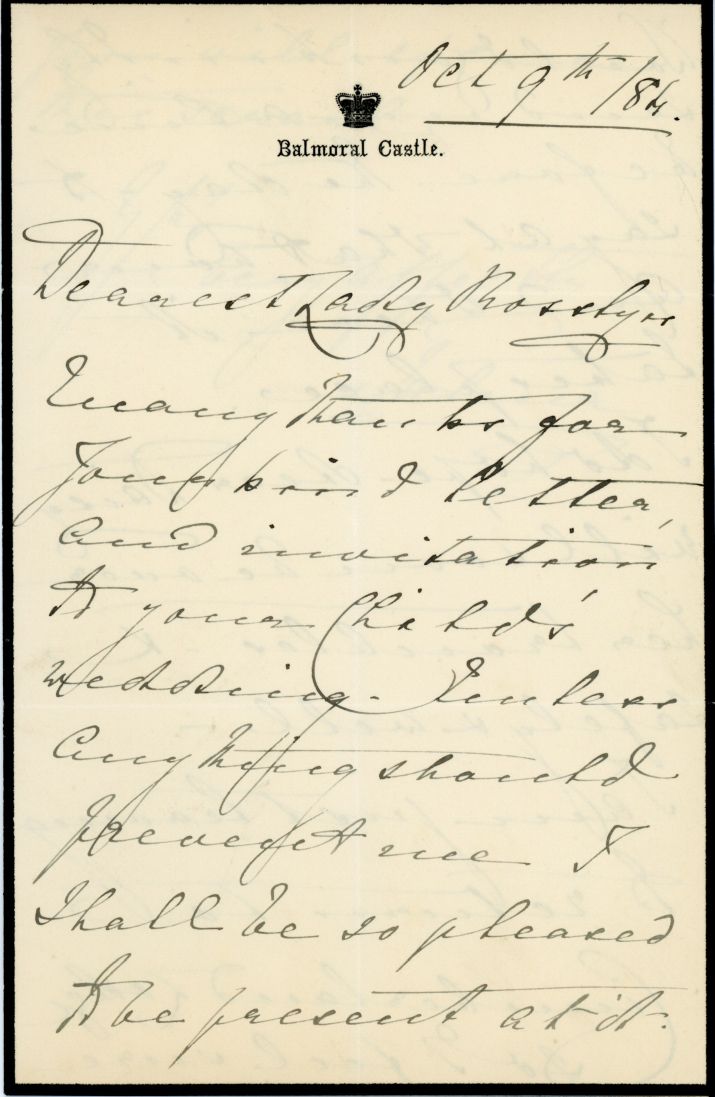 Oct 9th /84.
Balmoral Castle.
Dearest Lady Rosslyn
Many thanks for
your kind letter,
and invitation
to your Child's
wedding. Unless
anything should
prevent me I
shall be so pleased
to be present at it.